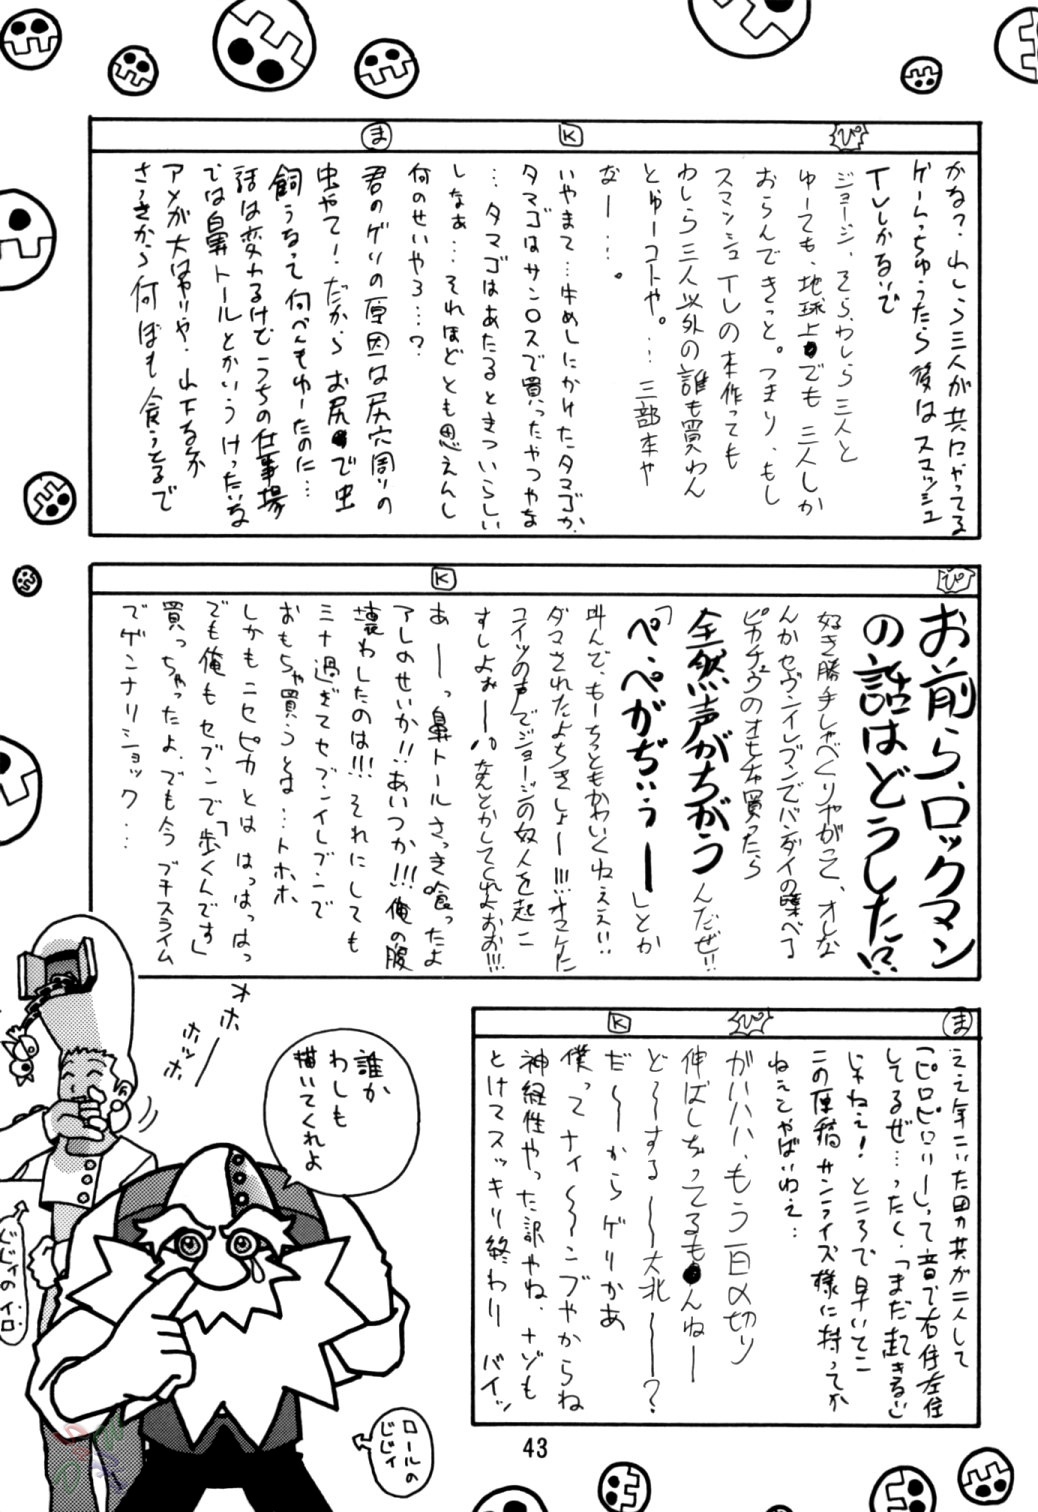 ぴ
かな?わしら三人が共にやってる
ゲームっちゅうたら後はスマッシュ
TVしかないで
ジョージ、そら、わしら三人と
ゆーても、地球上でも三人しか
おらんできっと。つまり、もし
スマッシュTVの本作っても
わしら三人以外の誰も買わん
とゆーコトや。…三部本や
なー…。
K
いやまて…牛めしにかけたタマゴか、
タマゴはサンロスで買ったやつやな
…タマゴはあたるときついらしい
しなぁ…それほどとも思えんし
何のせいやろ…?
ま
君のゲリの原因は尻穴周りの
虫やて!だから、お尻で虫
飼うなって何べんもゆーたのに…
話は変わるけどうちの仕事場
では鼻トールとかいうけったいな
アメが大はやりや、山下るか
さっきから何ぼも食うとるで
ぴ
お前ら、ロックマン
の話はどうした!?
好き勝手しゃべくりやがって、オレな
んかセヴンイレブンでバンダイの喋べる
ピカチュウのオモチャ買ったら
全然声がちがう
んだぜ!!
「ペ・ペがぢぃぅー」とか
叫んで、もーちっともかわいくねぇえ!!
ダマされたよちきしょー!!!オマケに
コイツの声でジョージの奴人を起こ
すしよぉー!なんとかしてくれよおお!!!
K
あーーっ鼻トールさっき喰ったよ
アレのせいか!!あいつか!!!俺の腹
壊わしたのは!!!それにしても
ミナ過ぎてセブンイレブンで
おもちゃ買うとは…トホホ
しかもニセピカとは はっはっはっ
でも俺もセブンで「歩くんです」
買っちゃったよ。でも今プチスライム
でゲンナリショック…
ま
ええ年こいた田力共が二人して
「ピロピロリー」って音で右往左往
してるぜ…ったく、「まだ起きるな」
じゃねえ!ところで早いとこ
この原稿サンライズ様に持ってか
ねえとやばいわえ…
ぴ
がハハハ、もう一日〆切り
伸ばしちってるもんねー
ど〜〜する〜〜大北〜〜?
K
だ〜〜からゲリかぁ
僕ってナイ〜〜ンブやからね
神経性やった訳やね、ナゾも
とけてスッキリ終わり バイッ
オホーー
ホッホ
誰か
わしも
描いてくれよ
じじィのイロ
ロールの
じじィ
43